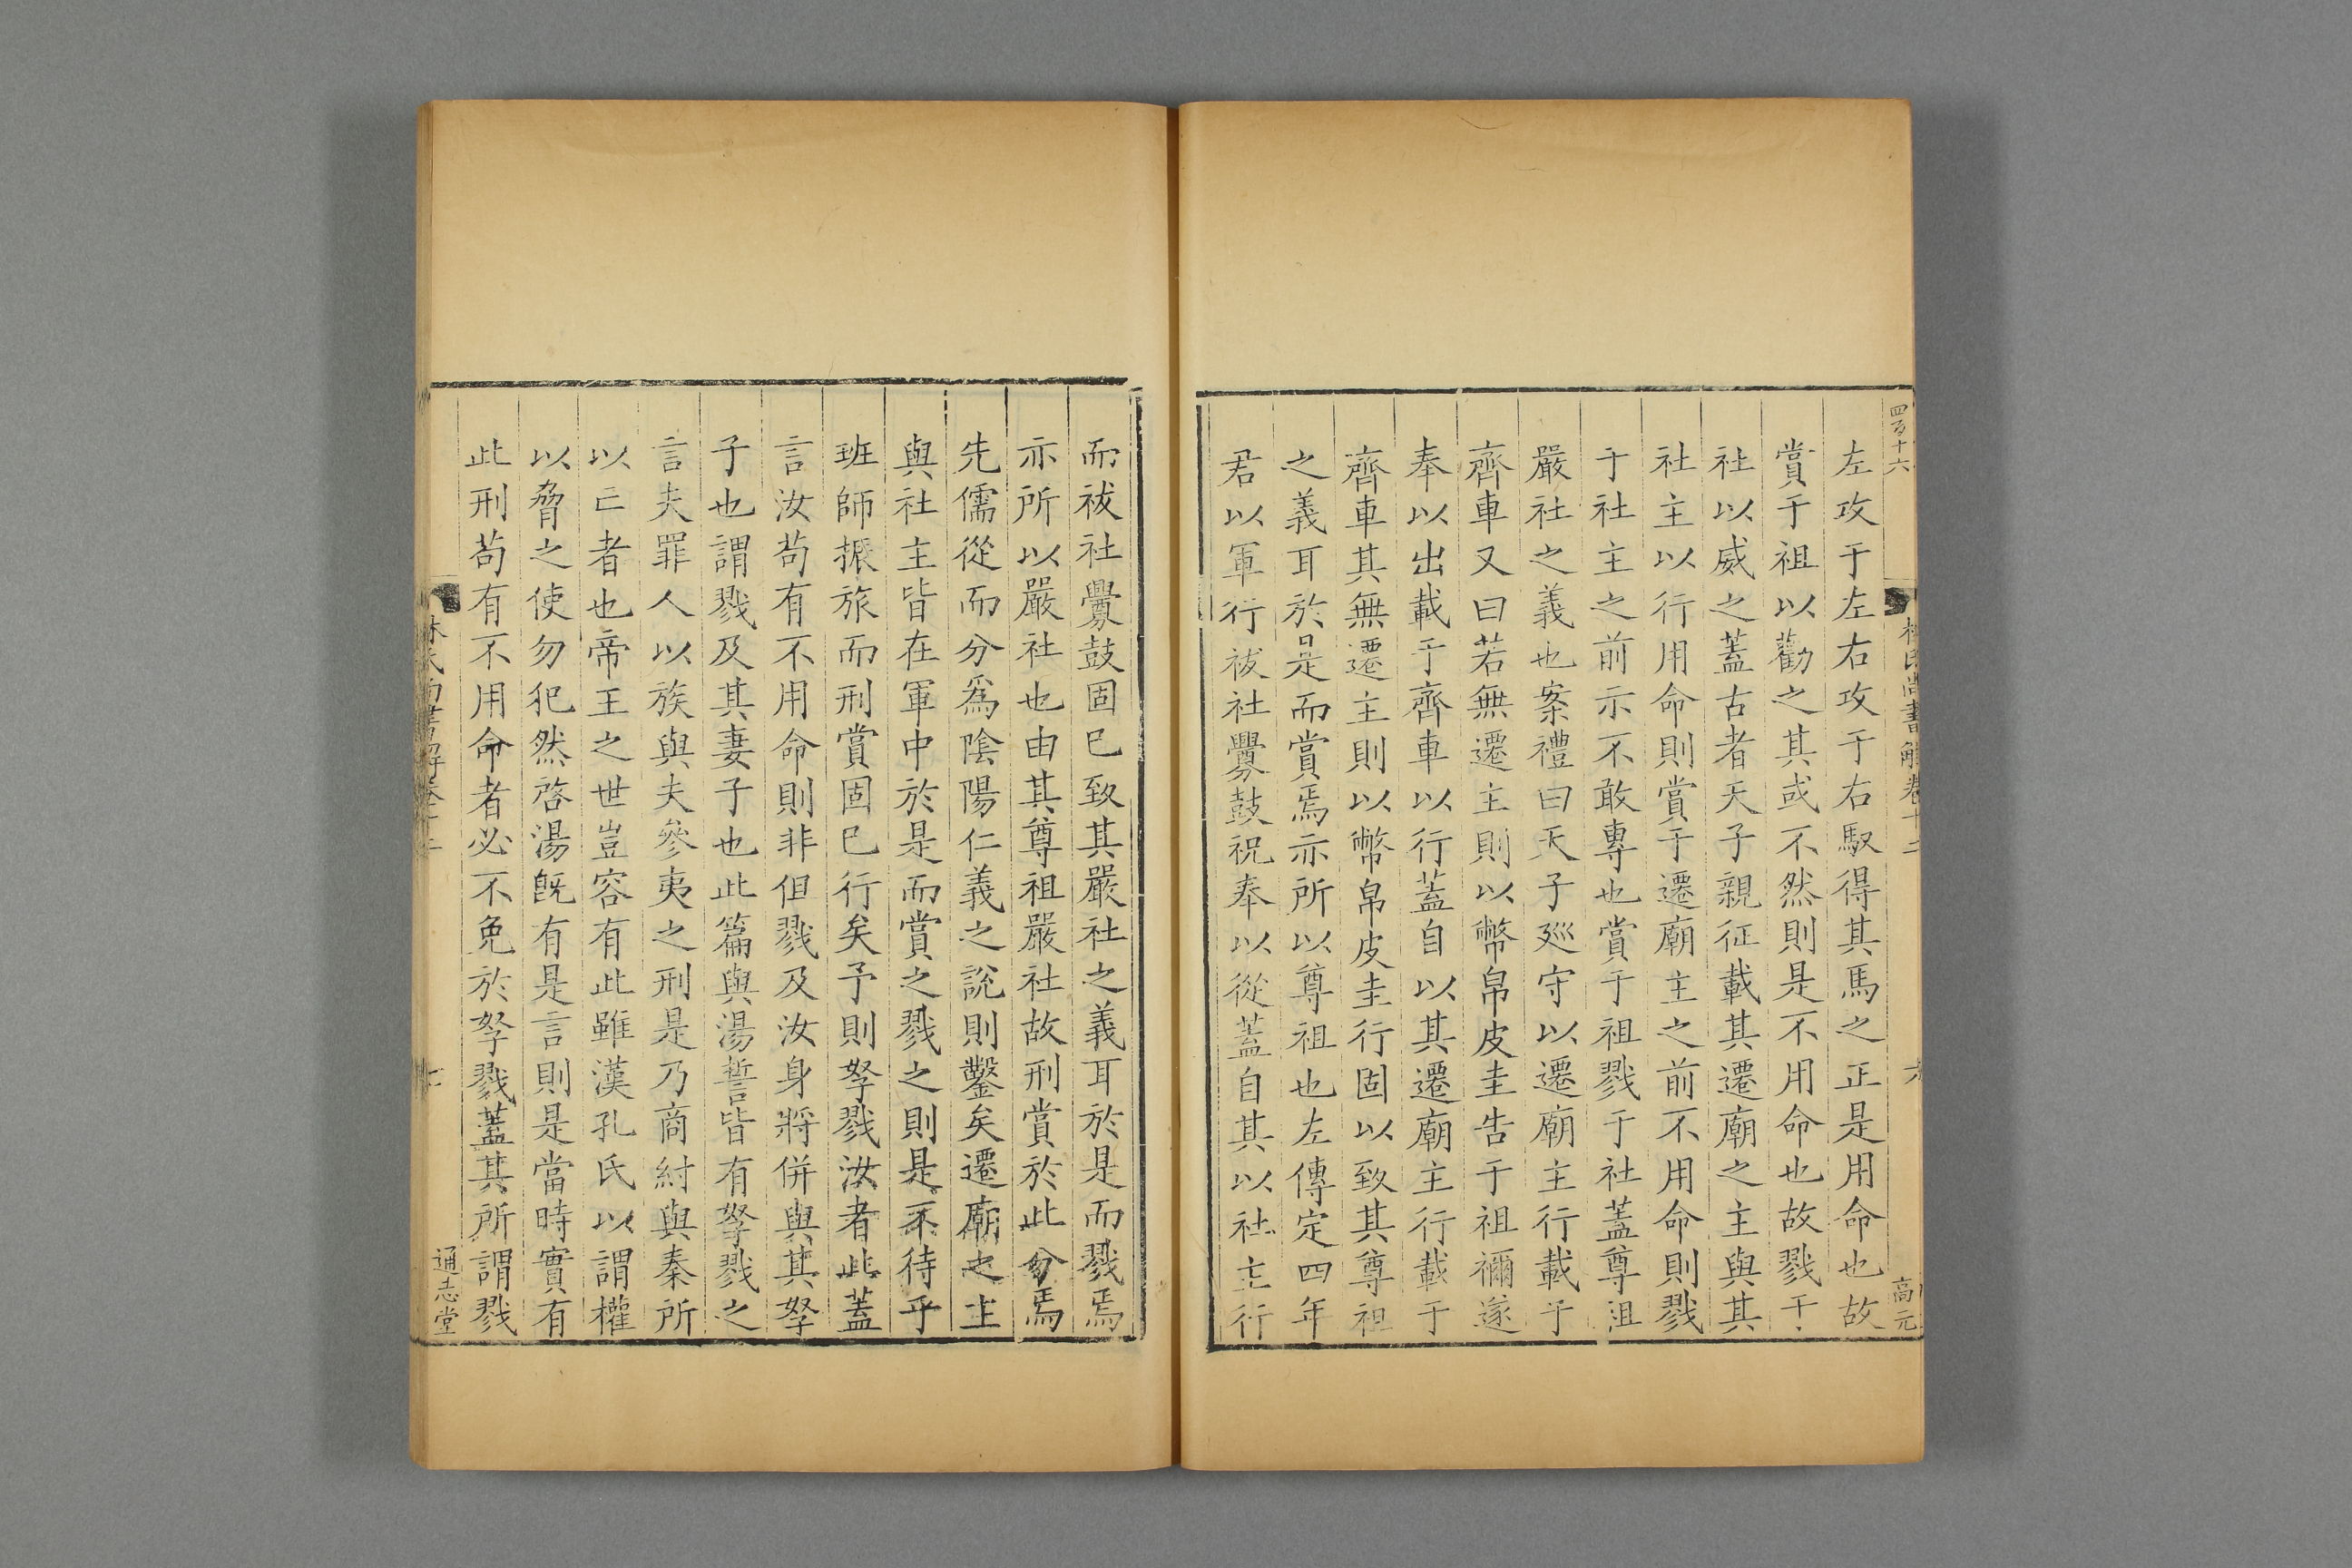 四百十六
左攻于左右攻于右馭得其馬之正是用命也故
賞于祖以勸之其或不然則是不用命也故戮于
社以威之蓋古者天子親征載其遷廟之主與其
社主以行用命則賞于遷廟主之前不用命則戮
于社主之前示不敢專也賞于祖戮于社蓋尊祖
嚴社之義也案禮曰天子廵守以遷廟主行載于
齊車又曰若無遷主則以幣帛皮圭告于祖禰遂
奉以出載于齊車以行蓋自以其遷廟主行載于
齊車其無遷主則以幣帛皮圭行固以致其尊祖
之義耳於是而賞焉亦所以尊祖也左傳定四年
君以軍行祓社釁鼓祝奉以從蓋自其以社主行
林氏尚書解卷十二
六
高元
而祓社釁鼓固已致其嚴社之義耳於是而戮焉
亦所以嚴社也由其尊祖嚴社故刑賞於此分焉
先儒從而分爲陰陽仁義之說則鑿矣遷廟之主
與社主皆在軍中於是而賞之戮之則是不待乎
班師振旅而刑賞固已行矣予則孥戮汝者此蓋
言汝苟有不用命則非但戮及汝身將併與其孥
子也謂戮及其妻子也此篇與湯誓皆有孥戮之
言夫罪人以族與夫參夷之刑是乃商紂與秦所
以亡者也帝王之世豈容有此雖漢孔氏以謂權
以脅之使勿犯然啓湯旣有是言則是當時實有
此刑苟有不用命者必不免於孥戮蓋其所謂戮
林氏尚書解卷十二
七
通志堂